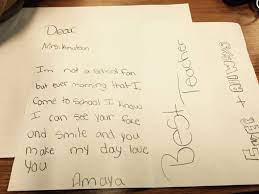 Dear
Mrs. Knudson
I'm not a school fan
but ever morning that I
come to school I know
I can see your face
and smile and you
make my day love
you
Amaya
Best Teacher